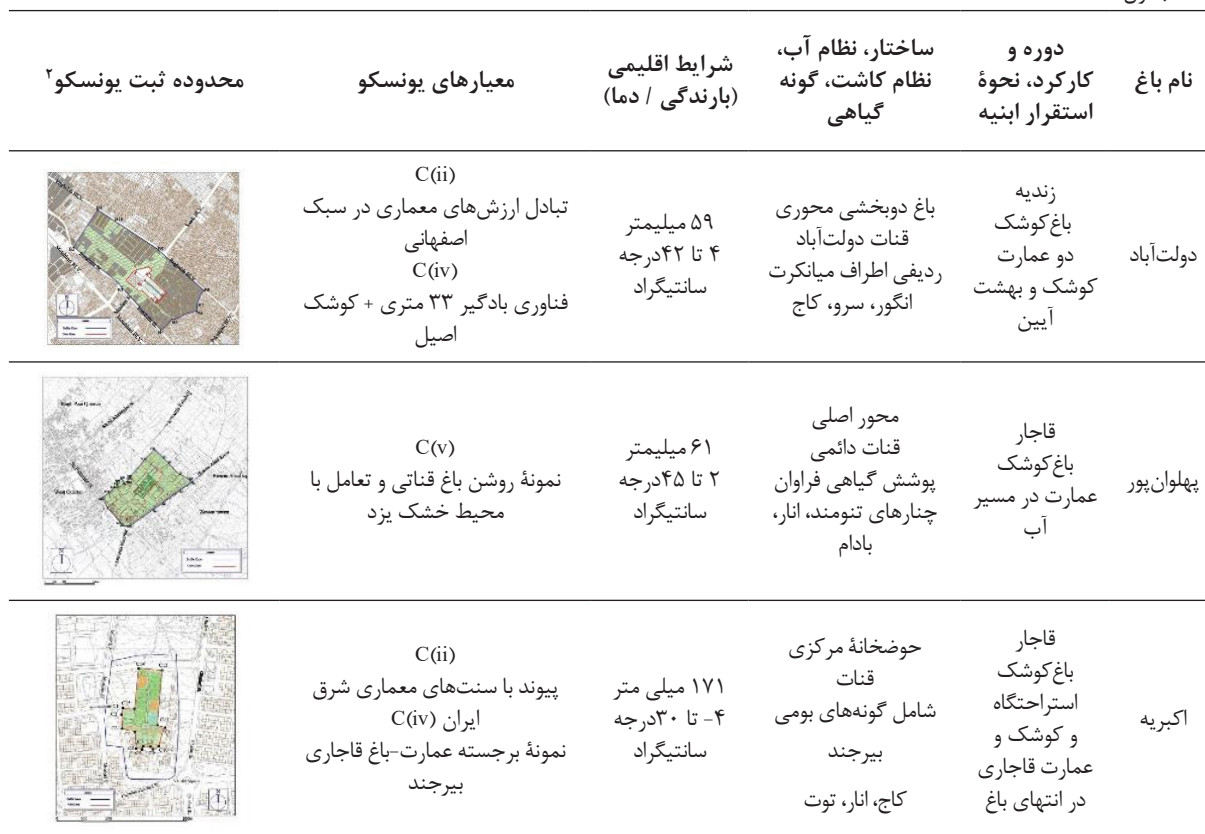 نام باغ
دوره و
کارکرد، نحوۀ
استقرار ابنیه
ساختار، نظام آب،
نظام کاشت، گونه
گیاهی
شرایط اقلیمی
(بارندگی / دما)
معیارهای یونسکو
محدوده ثبت یونسکو۲
دولت‌آباد
زندیه
باغ‌کوشک
دو عمارت
کوشک و بهشت
آیین
باغ دوبخشی محوری
قنات دولت‌آباد
ردیفی اطراف میانکرت
انگور، سرو، کاج
۵۹ میلیمتر
۴ تا ۴۲درجه
سانتیگراد
C(ii)
تبادل ارزش‌های معماری در سبک
اصفهانی
C(iv)
فناوری بادگیر ۳۳ متری + کوشک
اصیل
پهلوان‌پور
قاجار
باغ‌کوشک
عمارت در مسیر
آب
محور اصلی
قنات دائمی
پوشش گیاهی فراوان
چنارهای تنومند، انار،
بادام
۶۱ میلیمتر
۲ تا ۴۵درجه
سانتیگراد
C(v)
نمونۀ روشن باغ قناتی و تعامل با
محیط خشک یزد
اکبریه
قاجار
باغ‌کوشک
استراحتگاه
و کوشک و
عمارت قاجاری
در انتهای باغ
حوضخانۀ مرکزی
قنات
شامل گونه‌های بومی
بیرجند
کاج، انار، توت
۱۷۱ میلی متر
۴- تا ۳۰درجه
سانتیگراد
C(ii)
پیوند با سنت‌های معماری شرق
ایران C(iv)
نمونۀ برجسته عمارت-باغ قاجاری
بیرجند